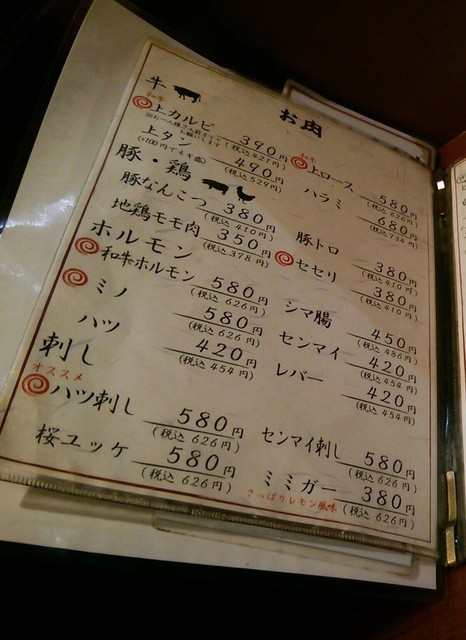 お肉
牛
和牛
上カルビ 390円
(税込421円)
上タン 490円
(+100円でネギ盛)
(税込529円)
和牛
上ロース 580円
(税込626円)
ハラミ 680円
(税込734円)
豚・鶏
豚なんこつ 380円
(税込410円)
地鶏モモ肉 350円
(税込378円)
豚トロ 380円
(税込410円)
セセリ 380円
(税込410円)
ホルモン
和牛ホルモン 580円
(税込626円)
ミノ 580円
(税込626円)
ハツ 420円
(税込454円)
シマ腸 450円
(税込486円)
センマイ 420円
(税込454円)
レバー 420円
(税込454円)
刺し
オススメ
ハツ刺し 580円
(税込626円)
桜ユッケ 580円
(税込626円)
センマイ刺し 580円
(税込626円)
ミミガー 380円
さっぱりレモン風味
(税込626円)